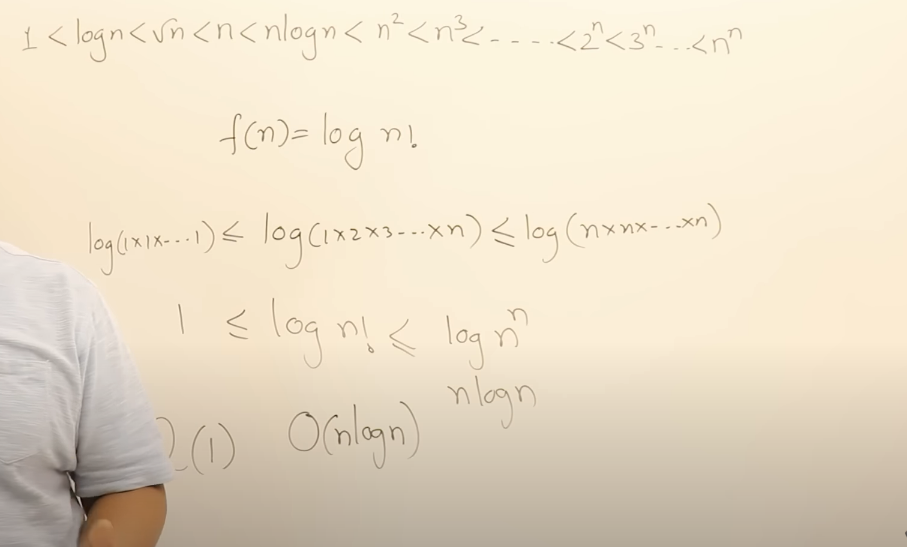 1 < logn < √n < n < nlogn < n² < n³ < ---- < 2ⁿ < 3ⁿ -- < nⁿ
f(n) = log n!
log(1×1×---1) ≤ log(1×2×3---×n) ≤ log(n×n×---×n)
1 ≤ log n! ≤ log nⁿ
nlogn
(1) O(nlogn)